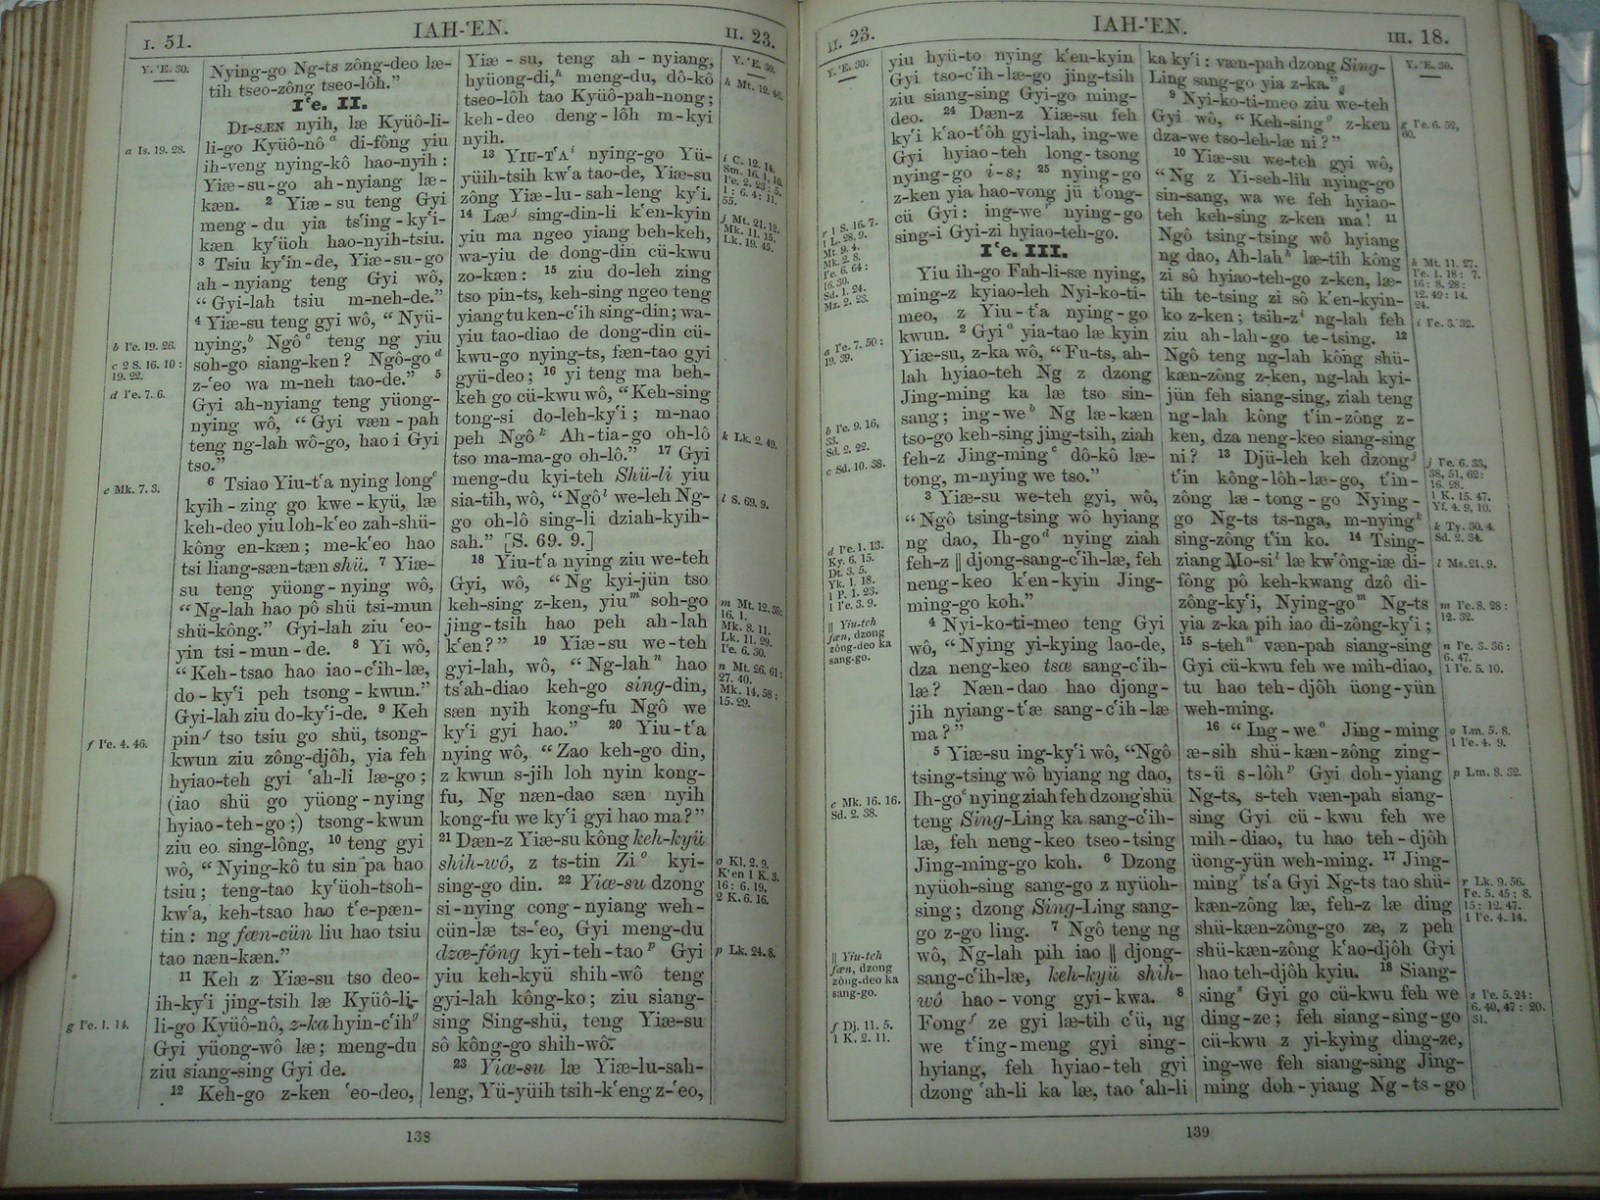 I. 51.
IAH-'EN.
II. 23.
Y. 'E. 30.
Nying-go Ng-ts zông-deo læ-
tih tseo-zông tseo-lôh.”
Iʻe. II.
a Is. 19. 28.
DI-SÆN nyih, læ Kyüô-li-
li-go Kyüô-nô a di-fông yiu
ih-veng nying-kô hao-nyih:
Yiæ-su-go ah-nyiang læ-
kæn. 2 Yiæ-su teng Gyi
meng-du yia tsʻing-kyʻi-
kæn kyʻüoh hao-nyih-tsiu.
3 Tsiu kyʻin-de, Yiæ-su-go
ah-nyiang teng Gyi wô,
“Gyi-lah tsiu m-neh-de.”
4 Yiæ-su teng gyi wô, “Nyü-
nying, b Ngô c teng ng yiu
soh-go siang-ken? Ngô-go d
z-ʻeo wa m-neh tao-de.” 5
Gyi ah-nyiang teng yüong-
nying wô, “Gyi væn-pah
teng ng-lah wô-go, hao i Gyi
tso.”
b Iʻe. 19. 26.
c 2 S. 16. 10:
19. 22.
d Iʻe. 7. 6.
6 Tsiao Yiu-tʻa nying long e
kyih-zing go kwe-kyü, læ
keh-deo yiu loh-kʻeo zah-shü-
kông en-kæn; me-kʻeo hao
tsi liang-sæn-tæn shü. 7 Yiæ-
su teng yüong-nying wô,
“Ng-lah hao pô shü tsi-mun
shü-kông.” Gyi-lah ziu ʻeo-
yin tsi-mun-de. 8 Yi wô,
“Keh-tsao hao iao-cʻih-læ,
do-kyʻi peh tsong-kwun.”
Gyi-lah ziu do-kyʻi-de. 9 Keh
pin f tso tsiu go shü, tsong-
kwun ziu zông-djôh, yia feh
hyiao-teh gyi ʻah-li læ-go;
(iao shü go yüong-nying
hyiao-teh-go;) tsong-kwun
ziu eo sing-lông, 10 teng gyi
wô, “Nying-kô tu sin pa hao
tsiu; teng-tao kyʻüoh-tsoh-
kwʻa, keh-tsao hao tʻe-pæn-
tin: ng fæn-cün liu hao tsiu
tao næn-kæn.”
e Mk. 7. 3.
f Iʻe. 4. 46.
11 Keh z Yiæ-su tso deo-
ih-kyʻi jing-tsih læ Kyüô-li-
li-go Kyüô-nô, z-ka hyin-cʻih g
Gyi yüong-wô læ; meng-du
ziu siang-sing Gyi de.
12 Keh-go z-ken ʻeo-deo,
g Iʻe. 1. 14.
Yiæ-su, teng ah-nyiang,
hyüong-di, h meng-du, dô-kô
tseo-lôh tao Kyüô-pah-nong;
keh-deo deng-lôh m-kyi
nyih.
13 YIU-TʻA i nying-go Yü-
yüih-tsih kwʻa tao-de, Yiæ-su
zông Yiæ-lu-sah-leng kyʻi.
14 Læ j sing-din-li kʻen-kyin
yiu ma ngeo yiang beh-keh,
wa-yiu de dong-din cü-kwu
zo-kæn: 15 ziu do-leh zing
tso pin-ts, keh-sing ngeo teng
yiang tu ken-cʻih sing-din; wa-
yiu tao-diao de dong-din cü-
kwu-go nying-ts, fæn-tao gyi
gyü-deo; 16 yi teng ma beh-
keh go cü-kwu wô, “Keh-sing
tong-si do-leh-kyʻi; m-nao
peh Ngô k Ah-tia-go oh-lô
tso ma-ma-go oh-lô.” 17 Gyi
meng-du kyi-teh Shü-li yiu
sia-tih, wô, “Ngô l we-leh Ng-
go oh-lô sing-li dziah-kyih-
sah.” [S. 69. 9.]
18 Yiu-tʻa nying ziu we-teh
Gyi, wô, “Ng kyi-jün tso
keh-sing z-ken, yiu m soh-go
jing-tsih hao peh ah-lah
kʻen?” 19 Yiæ-su we-teh
gyi-lah, wô, “Ng-lah n hao
tsʻah-diao keh-go sing-din,
sæn nyih kong-fu Ngô we
kyʻi gyi hao.” 20 Yiu-tʻa
nying wô, “Zao keh-go din,
z kwun s-jih loh nyin kong-
fu, Ng næn-dao sæn nyih
kong-fu we kyʻi gyi hao ma?”
21 Dæn-z Yiæ-su kông keh-kyü
shih-wô, z ts-tin Zi o kyi-
sing-go din. 22 Yiæ-su dzong
si-nying cong-nyiang weh-
cün-læ ts-ʻeo, Gyi meng-du
dzæ-fông kyi-teh-tao p Gyi
yiu keh-kyü shih-wô teng
gyi-lah kông-ko; ziu siang-
sing Sing-shü, teng Yiæ-su
sô kông-go shih-wô.
23 Yiæ-su læ Yiæ-lu-sah-
leng, Yü-yüih tsih-kʻeng z-ʻeo,
Y. 'E. 30.
h Mt. 12. 46.
i C. 12. 14.
Sm. 16. 1, 16.
Iʻe. 2. 23: 5.
1: 6. 4: 11.
55.
j Mt. 21. 12.
Mk. 11. 15.
Lk. 19. 45.
k Lk. 2. 49.
l S. 69. 9.
m Mt. 12. 38:
16. 1.
Mk. 8. 11.
Lk. 11. 29.
Iʻe. 6. 30.
n Mt. 26. 61:
27. 40.
Mk. 14. 58:
15. 29.
o Kl. 2. 9.
Kʻen 1 K. 3.
16: 6. 19.
2 K. 6. 16.
p Lk. 24. 8.
138
II. 23.
IAH-'EN.
III. 18.
Y. 'E. 30.
yiu hyü-to nying kʻen-kyin
Gyi tso-cʻih-læ-go jing-tsih
ziu siang-sing Gyi-go ming-
deo. 24 Dæn-z Yiæ-su feh
kyʻi kʻao-tʻôh gyi-lah, ing-we
Gyi hyiao-teh long-tsong
nying-go i-s; 25 nying-go
z-ken yia hao-vong jü tʻong-
cü Gyi: ing-we r nying-go
sing-i Gyi-zi hyiao-teh-go.
r 1 S. 16. 7.
1 L. 28. 9.
Mt. 9. 4.
Mk. 2. 8.
Iʻe. 6. 64:
16. 30.
Sd. 1. 24.
Mz. 2. 23.
Iʻe. III.
Yiu ih-go Fah-li-sæ nying,
ming-z kyiao-leh Nyi-ko-ti-
meo, z Yiu-tʻa nying-go
kwun. 2 Gyi a yia-tao læ kyin
Yiæ-su, z-ka wô, “Fu-ts, ah-
lah hyiao-teh Ng z dzong
Jing-ming ka læ tso sin-
sang; ing-we b Ng læ-kæn
tso-go keh-sing jing-tsih, ziah
feh-z Jing-ming c dô-kô læ-
tong, m-nying we tso.”
a Iʻe. 7. 50:
19. 39.
b Iʻe. 9. 16,
33.
Sd. 2. 22.
c Sd. 10. 38.
3 Yiæ-su we-teh gyi, wô,
“Ngô tsing-tsing wô hyiang
ng dao, Ih-go d nying ziah
feh-z ‖ djong-sang-cʻih-læ, feh
neng-keo kʻen-kyin Jing-
ming-go koh.”
d Iʻe. 1. 13.
Ky. 6. 15.
Dt. 3. 5.
Yk. 1. 18.
1 P. 1. 23.
1 Iʻe. 3. 9.
‖ Yiu-teh
fæn, dzong
zông-deo ka
sang-go.
4 Nyi-ko-ti-meo teng Gyi
wô, “Nying yi-kying lao-de,
dza neng-keo tsæ sang-cʻih-
læ? Næn-dao hao djong-
jih nyiang-tʻæ sang-cʻih-læ
ma?”
5 Yiæ-su ing-kyʻi wô, “Ngô
tsing-tsing wô hyiang ng dao,
Ih-go e nying ziah feh dzong shü
teng Sing-Ling ka sang-cʻih-
læ, feh neng-keo tseo-tsing
Jing-ming-go koh. 6 Dzong
nyüoh-sing sang-go z nyüoh-
sing; dzong Sing-Ling sang-
go z-go ling. 7 Ngô teng ng
wô, Ng-lah pih iao ‖ djong-
sang-cʻih-læ, keh-kyü shih-
wô hao-vong gyi-kwa. 8
Fong f ze gyi læ-tih cʻü, ng
we tʻing-meng gyi sing-
hyiang, feh hyiao-teh gyi
dzong ʻah-li ka læ, tao ʻah-li
e Mk. 16. 16.
Sd. 2. 38.
‖ Yiu-teh
fæn, dzong
zông-deo ka
sang-go.
f Dj. 11. 5.
1 K. 2. 11.
ka kyʻi: væn-pah dzong Sing-
Ling sang-go yia z-ka.”
9 Nyi-ko-ti-meo ziu we-teh
Gyi wô, “Keh-sing g z-ken
dza-we tso-leh-læ ni?”
10 Yiæ-su we-teh gyi wô,
“Ng z Yi-seh-lih nying-go
sin-sang, wa we feh hyiao-
teh keh-sing z-ken ma! 11
Ngô tsing-tsing wô hyiang
ng dao, Ah-lah h læ-tih kông
zi sô hyiao-teh-go z-ken, læ-
tih te-tsing zi sô kʻen-kyin-
ko z-ken; tsih-z i ng-lah feh
ziu ah-lah-go te-tsing. 12
Ngô teng ng-lah kông shü-
kæn-zông z-ken, ng-lah kyi-
jün feh siang-sing, ziah teng
ng-lah kông tʻin-zông z-
ken, dza neng-keo siang-sing
ni? 13 Djü-leh keh dzong j
tʻin kông-lôh-læ-go, tʻin-
zông læ-tong-go Nying-
go Ng-ts ts-nga, m-nying k
sing-zông tʻin ko. 14 Tsing-
ziang Mo-si l læ kwʻông-iæ di-
fông pô keh-kwang dzô di-
zông-kyʻi, Nying-go m Ng-ts
yia z-ka pih iao di-zông-kyʻi;
15 s-teh n væn-pah siang-sing
Gyi cü-kwu feh we mih-diao,
tu hao teh-djôh üong-yün
weh-ming.
16 “Ing-we o Jing-ming
æ-sih shü-kæn-zông zing-
ts-ü s-lôh p Gyi doh-yiang
Ng-ts, s-teh væn-pah siang-
sing Gyi cü-kwu feh we
mih-diao, tu hao teh-djôh
üong-yün weh-ming. 17 Jing-
ming r tsʻa Gyi Ng-ts tao shü-
kæn-zông læ, feh-z læ ding
shü-kæn-zông-go ze, z peh
shü-kæn-zông kʻao-djôh Gyi
hao teh-djôh kyiu. 18 Siang-
sing s Gyi go cü-kwu feh we
ding-ze; feh siang-sing-go
cü-kwu z yi-kying ding-ze,
ing-we feh siang-sing Jing-
ming doh-yiang Ng-ts-go
Y. 'E. 30.
g Iʻe. 6. 52,
60.
h Mt. 11. 27.
Iʻe. 1. 18: 7.
16: 8. 28:
12. 49: 14.
24.
i Iʻe. 3. 32.
j Iʻe. 6. 33,
38, 51, 62:
16. 28.
1 K. 15. 47.
Yf. 4. 9, 10.
k Ty. 30. 4.
Sd. 2. 34.
l Ms. 21. 9.
m Iʻe. 8. 28:
12. 32.
n Iʻe. 3. 36:
6. 47.
1 Iʻe. 5. 10.
o Lm. 5. 8.
1 Iʻe. 4. 9.
p Lm. 8. 32.
r Lk. 9. 56.
Iʻe. 5. 45: 8.
15: 12. 47.
1 Iʻe. 4. 14.
s Iʻe. 5. 24:
6. 40, 47: 20.
31.
139